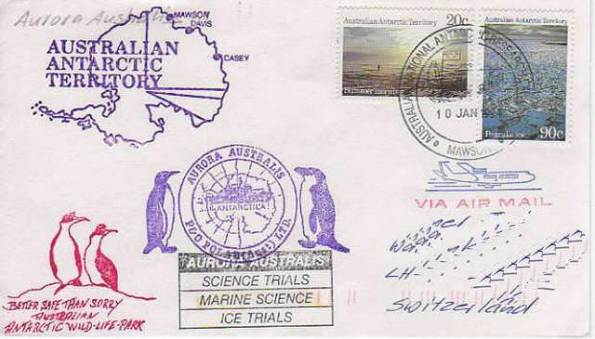 Aurora Australis
MAWSON
DAVIS
CASEY
AUSTRALIAN
ANTARCTIC
TERRITORY
Australian Antarctic Territory 20c
Summer
Australian Antarctic Territory
90c
AUSTRALIAN NATIONAL ANTARCTIC RESEARCH
10 JAN
MAWSON
VIA AIR MAIL
AURORA AUSTRALIS
ANTARCTICA
P&O POLAR (Aust) LTD.
AURORA AUSTRALIS
SCIENCE TRIALS
MARINE SCIENCE
ICE TRIALS
BETTER SAFE THAN SORRY
AUSTRALIAN
ANTARCTIC WILD-LIFE-PARK
CH
Switzerland